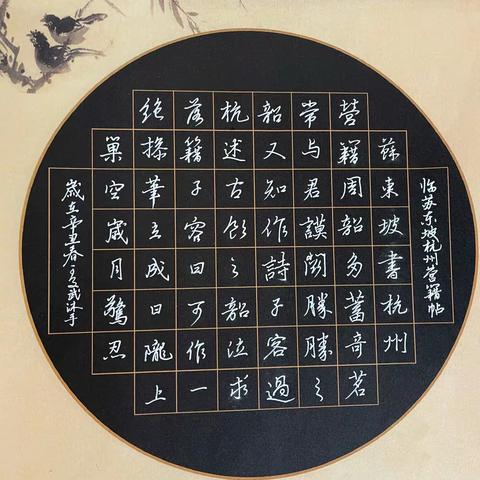 临苏东坡杭州营籍帖
蘇東坡書杭州
營籍周韶多蓄奇茗
常与君謨闘勝勝之
韶又知作詩子容過
杭述古飲之韶泣求
落籍子容曰可作一
絶援筆立成曰隴上
巢空歲月驚忍
歲在辛丑春沐手